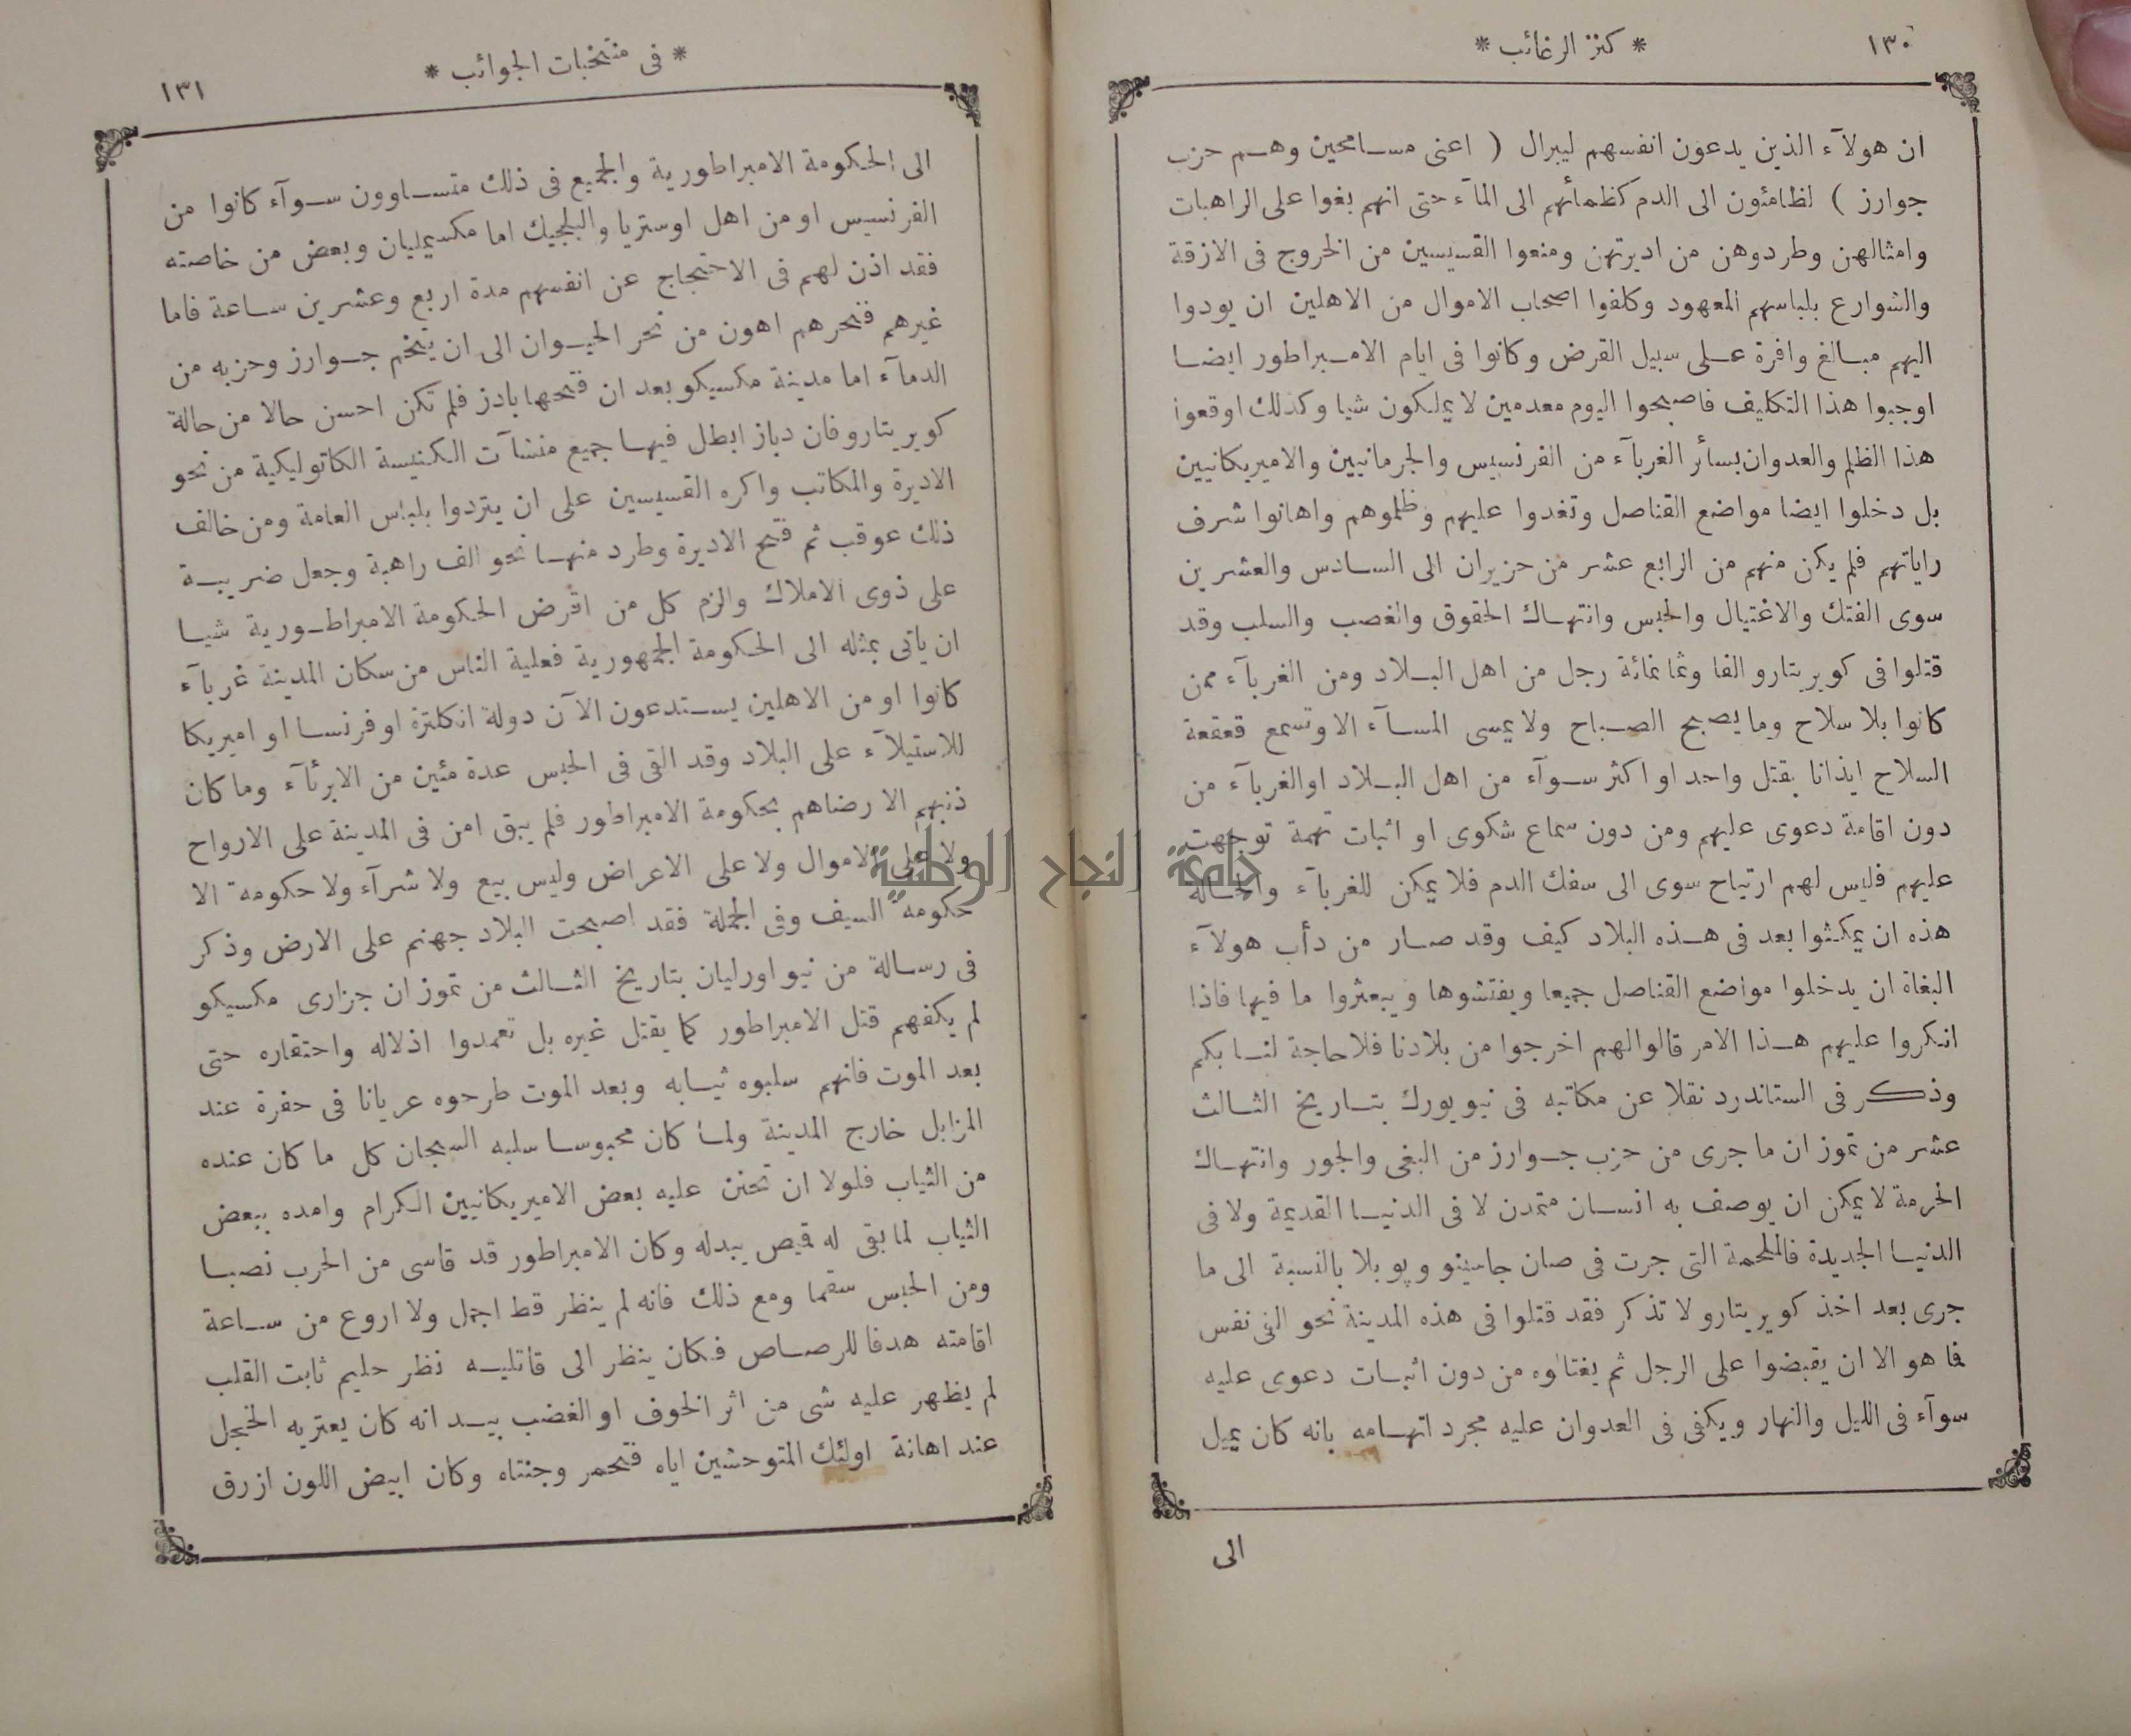 ١٣٠
* كنز الرغائب *
ان هولآء الذين يدعون انفسهم ليبرال ( اعنى مسامحين وهم حزب
جوارز ) لظامئون الى الدم كظمأئهم الى المآء حتى انهم بغوا على الراهبات
وامثالهن وطردوهن من اديرتهن ومنعوا القسيسين من الخروج فى الازقة
والشوارع بلباسهم المعهود وكلفوا اصحاب الاموال من الاهلين ان يودوا
اليهم مبالغ وافرة على سبيل القرض وكانوا فى ايام الامبراطور ايضا
اوجبوا هذا التكليف فاصبحوا اليوم معدمين لا يملكون شيا وكذلك اوقعوا
هذا الظلم والعدوان بسائر الغربآء من الفرنسيس والجرمانيين والاميريكانيين
بل دخلوا ايضا مواضع القناصل وتغدوا عليهم وظلموهم واهانوا شرف
راياتهم فلم يكن منهم من الرابع عشر من حزيران الى السادس والعشرين
سوى الفتك والاغتيال والحبس وانتهاك الحقوق والغصب والسلب وقد
قتلوا فى كويريتارو الفا وثمانمائة رجل من اهل البلاد ومن الغربآء ممن
كانوا بلا سلاح وما يصبح الصباح ولا يمسى المسآء الا وتسمع قعقعة
السلاح ايذانا بقتل واحد او اكثر سوآء من اهل البلاد او الغربآء من
دون اقامة دعوى عليهم ومن دون سماع شكوى او اثبات تهمة توجهت
عليهم فليس لهم ارتياح سوى الى سفك الدم فلا يمكن للغربآء والحالة
هذه ان يمكثوا بعد فى هذه البلاد كيف وقد صار من دأب هولآء
البغاة ان يدخلوا مواضع القناصل جميعا ويفتشوها ويبعثروا ما فيها فاذا
انكروا عليهم هذا الامر قالوا لهم اخرجوا من بلادنا فلا حاجة لنا بكم
وذكر فى الستاندرد نقلا عن مكاتبه فى نيويورك بتاريخ الثالث
عشر من تموز ان ما جرى من حزب جوارز من البغى والجور وانتهاك
الحرمة لا يمكن ان يوصف به انسان متمدن لا فى الدنيا القديمة ولا فى
الدنيا الجديدة فالملحمة التى جرت فى صان جاسينو وپوبلا بالنسبة الى ما
جرى بعد اخذ كويريتارو لا تذكر فقد قتلوا فى هذه المدينة نحو الفى نفس
فما هو الا ان يقبضوا على الرجل ثم يغتالوه من دون اثبات دعوى عليه
سوآء فى الليل والنهار ويكفى فى العدوان عليه مجرد اتهامه بانه كان يميل
الى
* فى منتخبات الجوائب *
١٣١
الى الحكومة الامبراطورية والجميع فى ذلك متساوون سوآء كانوا من
الفرنسيس او من اهل اوستريا والبلجيك اما مكسيميليان وبعض من خاصته
فقد اذن لهم فى الاحتجاج عن انفسهم مدة اربع وعشرين ساعة فاما
غيرهم فنحرهم اهون من نحر الحيوان الى ان يتخم جوارز وحزبه من
الدمآء اما مدينة مكسيكو بعد ان فتحها بادز فلم تكن احسن حالا من حالة
كويريتارو فان دياز ابطل فيها جميع منشآت الكنيسة الكاتوليكية من نحو
الاديرة والمكاتب واكره القسيسين على ان يتزدوا بلباس العامة ومن خالف
ذلك عوقب ثم فتح الاديرة وطرد منها نحو الف راهبة وجعل ضريبة
على ذوى الاملاك والزم كل من اقرض الحكومة الامبراطورية شيا
ان ياتى بمثله الى الحكومة الجمهورية فعلية الناس من سكان المدينة غربآء
كانوا او من الاهلين يستدعون الآن دولة انكلترة او فرنسا او اميريكا
للاستيلآء على البلاد وقد القى فى الحبس عدة مئين من الابرئآء وما كان
ذنبهم الا رضاهم بحكومة الامبراطور فلم يبق امن فى المدينة على الارواح
ولا على الاموال ولا على الاعراض وليس بيع ولا شرآء ولا حكومة الا
حكومة السيف وفى الجملة فقد اصبحت البلاد جهنم على الارض وذكر
فى رسالة من نيو اورليان بتاريخ الثالث من تموز ان جزارى مكسيكو
لم يكفهم قتل الامبراطور كما يقتل غيره بل تعمدوا اذلاله واحتقاره حتى
بعد الموت فانهم سلبوه ثيابه وبعد الموت طرحوه عريانا فى حفرة عند
المزابل خارج المدينة ولما كان محبوسا سلبه السجان كل ما كان عنده
من الثياب فلولا ان تحنن عليه بعض الاميريكانيين الكرام وامده ببعض
الثياب لما بقى له قميص يبدله وكان الامبراطور قد قاسى من الحرب نصبا
ومن الحبس سقما ومع ذلك فانه لم ينظر قط اجمل ولا اروع من ساعة
اقامته هدفا للرصاص فكان ينظر الى قاتليه نظر حليم ثابت القلب
لم يظهر عليه شى من اثر الخوف او الغضب بيد انه كان يعتريه الخجل
عند اهانة اولئك المتوحشين اياه فتحمر وجنتاه وكان ابيض اللون ازرق
جامعة النجاح الوطنية